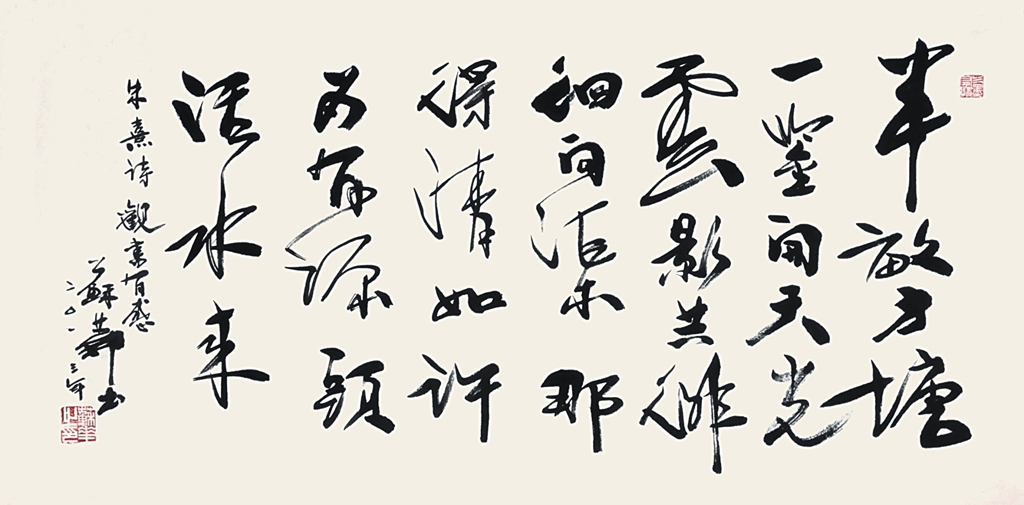 半畝方塘
一鉴開天光
雲影共徘
徊问渠那
得清如許
为有源頭
活水来
朱熹诗 觀書有感
蘇華书
二〇一三年